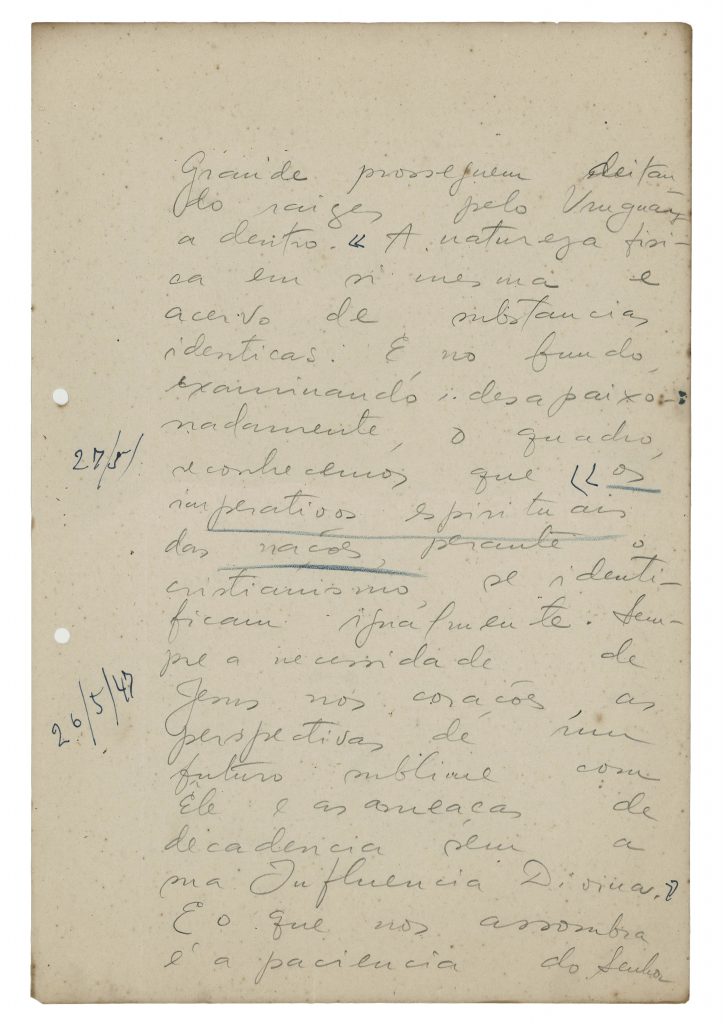 Grande prosseguem deitan-
do raizes pelo Uruguay
a dentro. « A natureza fisi-
ca em si mesma e
acervo de substancias
identicas. E, no fundo,
examinando, desapaixo-
nadamente, o quadro,
27/5/
reconhecemos que « os
imperativos espirituais
das nações, perante o
cristianismo, se identi-
ficam igualmente. Sem-
pre a necessidade de
26/5/47
Jesus nos corações, as
perspectivas de um
futuro sublime com
Êle e as ameaças de
decadencia sem a
sua Influencia Divina. »
E o que nos assombra
é a paciencia do Senhor